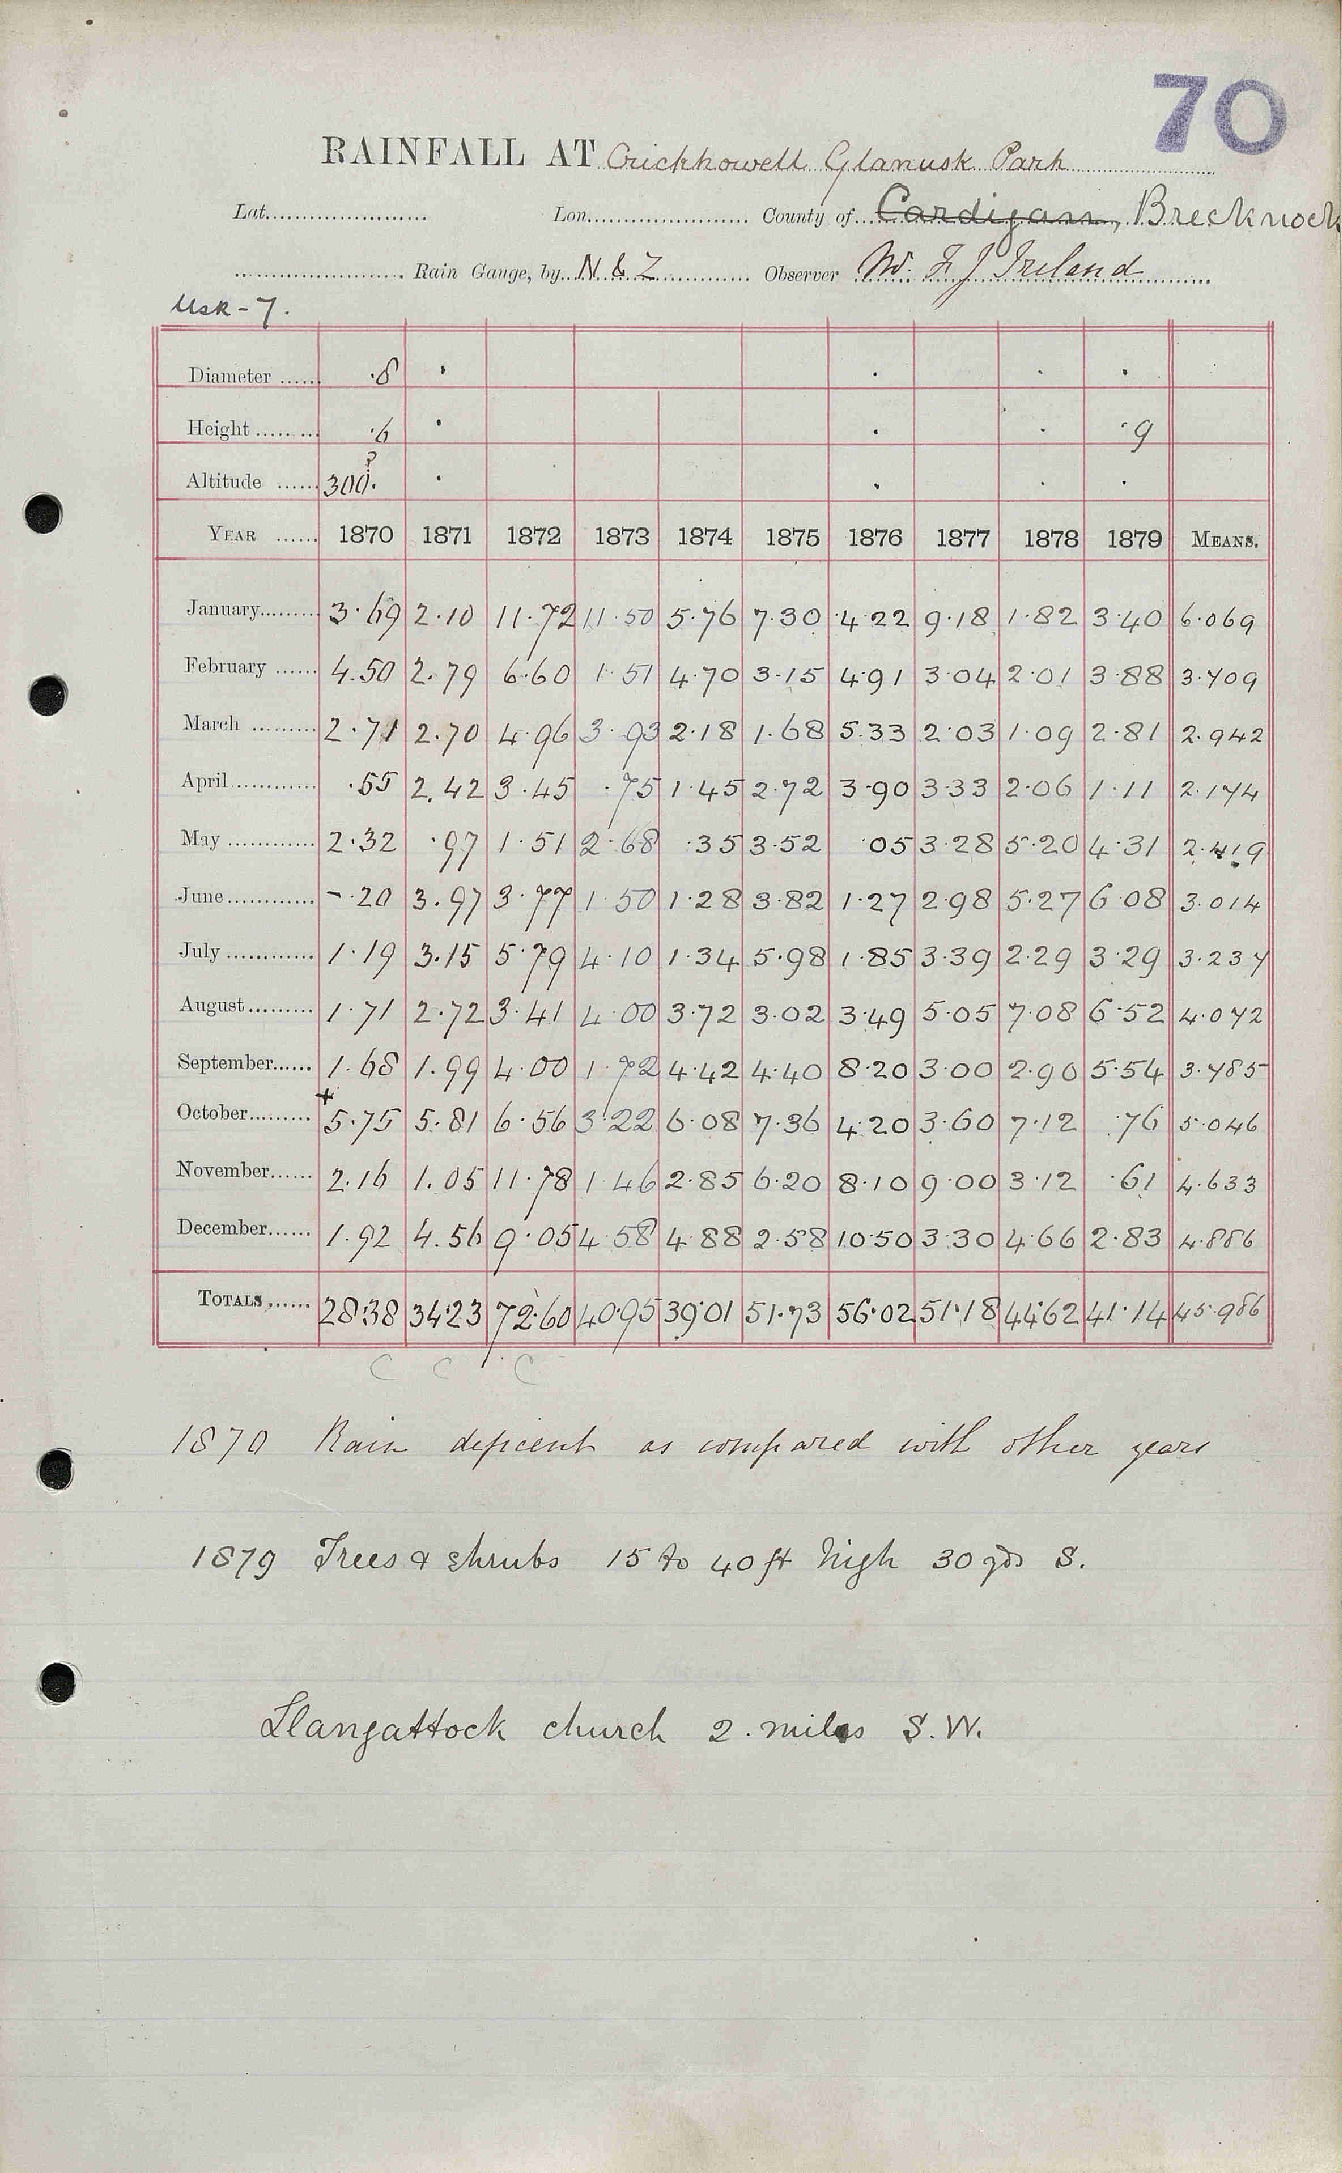 70
RAINFALL AT Crickhowell Glanusk Park
Lat. Lon. County of Cardigan, Brecknock
Rain Gauge, by N & Z Observer W. F J Ireland
Usk-7.
Diameter ·8
Height ·6 ·9
Altitude 300. ?
YEAR 1870 1871 1872 1873 1874 1875 1876 1877 1878 1879 MEANS.
January 3·69 2·10 11·72 11·50 5·76 7·30 4·22 9·18 1·82 3·40 6·069
February 4·50 2·79 6·60 1·51 4·70 3·15 4·91 3·04 2·01 3·88 3·709
March 2·71 2·70 4·96 3·93 2·18 1·68 5·33 2·03 1·09 2·81 2·942
April ·55 2.42 3·45 ·75 1·45 2·72 3·90 3·33 2·06 1·11 2·174
May 2·32 ·97 1·51 2·68 ·35 3·52 ·05 3·28 5·20 4·31 2·419
June -·20 3·97 3·77 1·50 1·28 3·82 1·27 2·98 5·27 6·08 3·014
July 1·19 3·15 5·79 4·10 1·34 5·98 1·85 3·39 2·29 3·29 3·237
August 1·71 2·72 3·41 4·00 3·72 3·02 3·49 5·05 7·08 6·52 4·072
September 1·68 1·99 4·00 1·72 4·42 4·40 8·20 3·00 2·90 5·54 3·785
October +5·75 5·81 6·56 3·22 6·08 7·36 4·20 3·60 7·12 ·76 5·046
November 2·16 1·05 11·78 1·46 2·85 6·20 8·10 9·00 3·12 ·61 4·633
December 1·92 4·56 9·05 4·58 4·88 2·58 10·50 3·30 4·66 2·83 4·886
TOTALS 28·38 34·23 72·60 40·95 39·01 51·73 56·02 51·18 44·62 41·14 45·986
C C C
1870 Rain deficient as compared with other years
1879 Trees & shrubs 15 to 40 ft high 30 yds S.
Llangattock church 2. miles S.W.